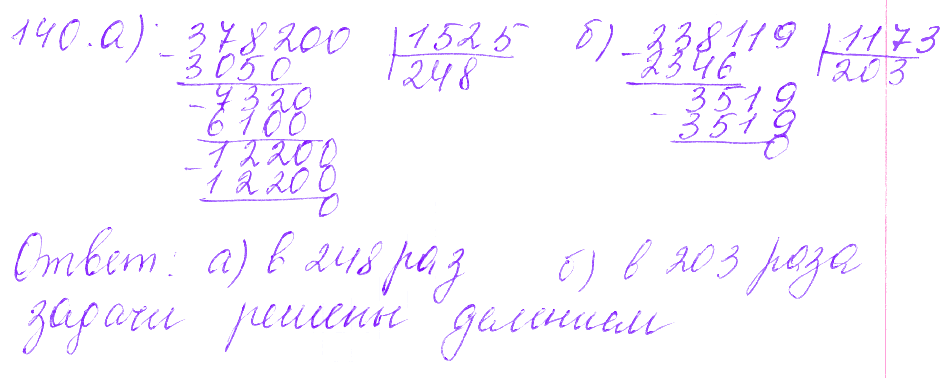 140. а) - 378200 | 1525 б) - 238119 | 1173
3050 248 2346 203
- 7320 3519
6100 - 3519
- 12200 0
12200
0
Ответ: а) в 248 раз б) в 203 раза
задачи решены делением